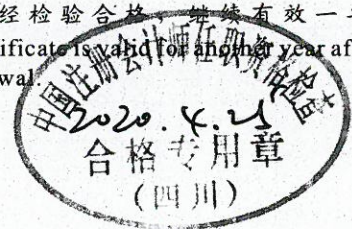 经检验合格，继续有效一年
ificate is valid for another year af
wal.
中国注册会计师任职资格检查
2020.4.25
合格专用章
(四川)